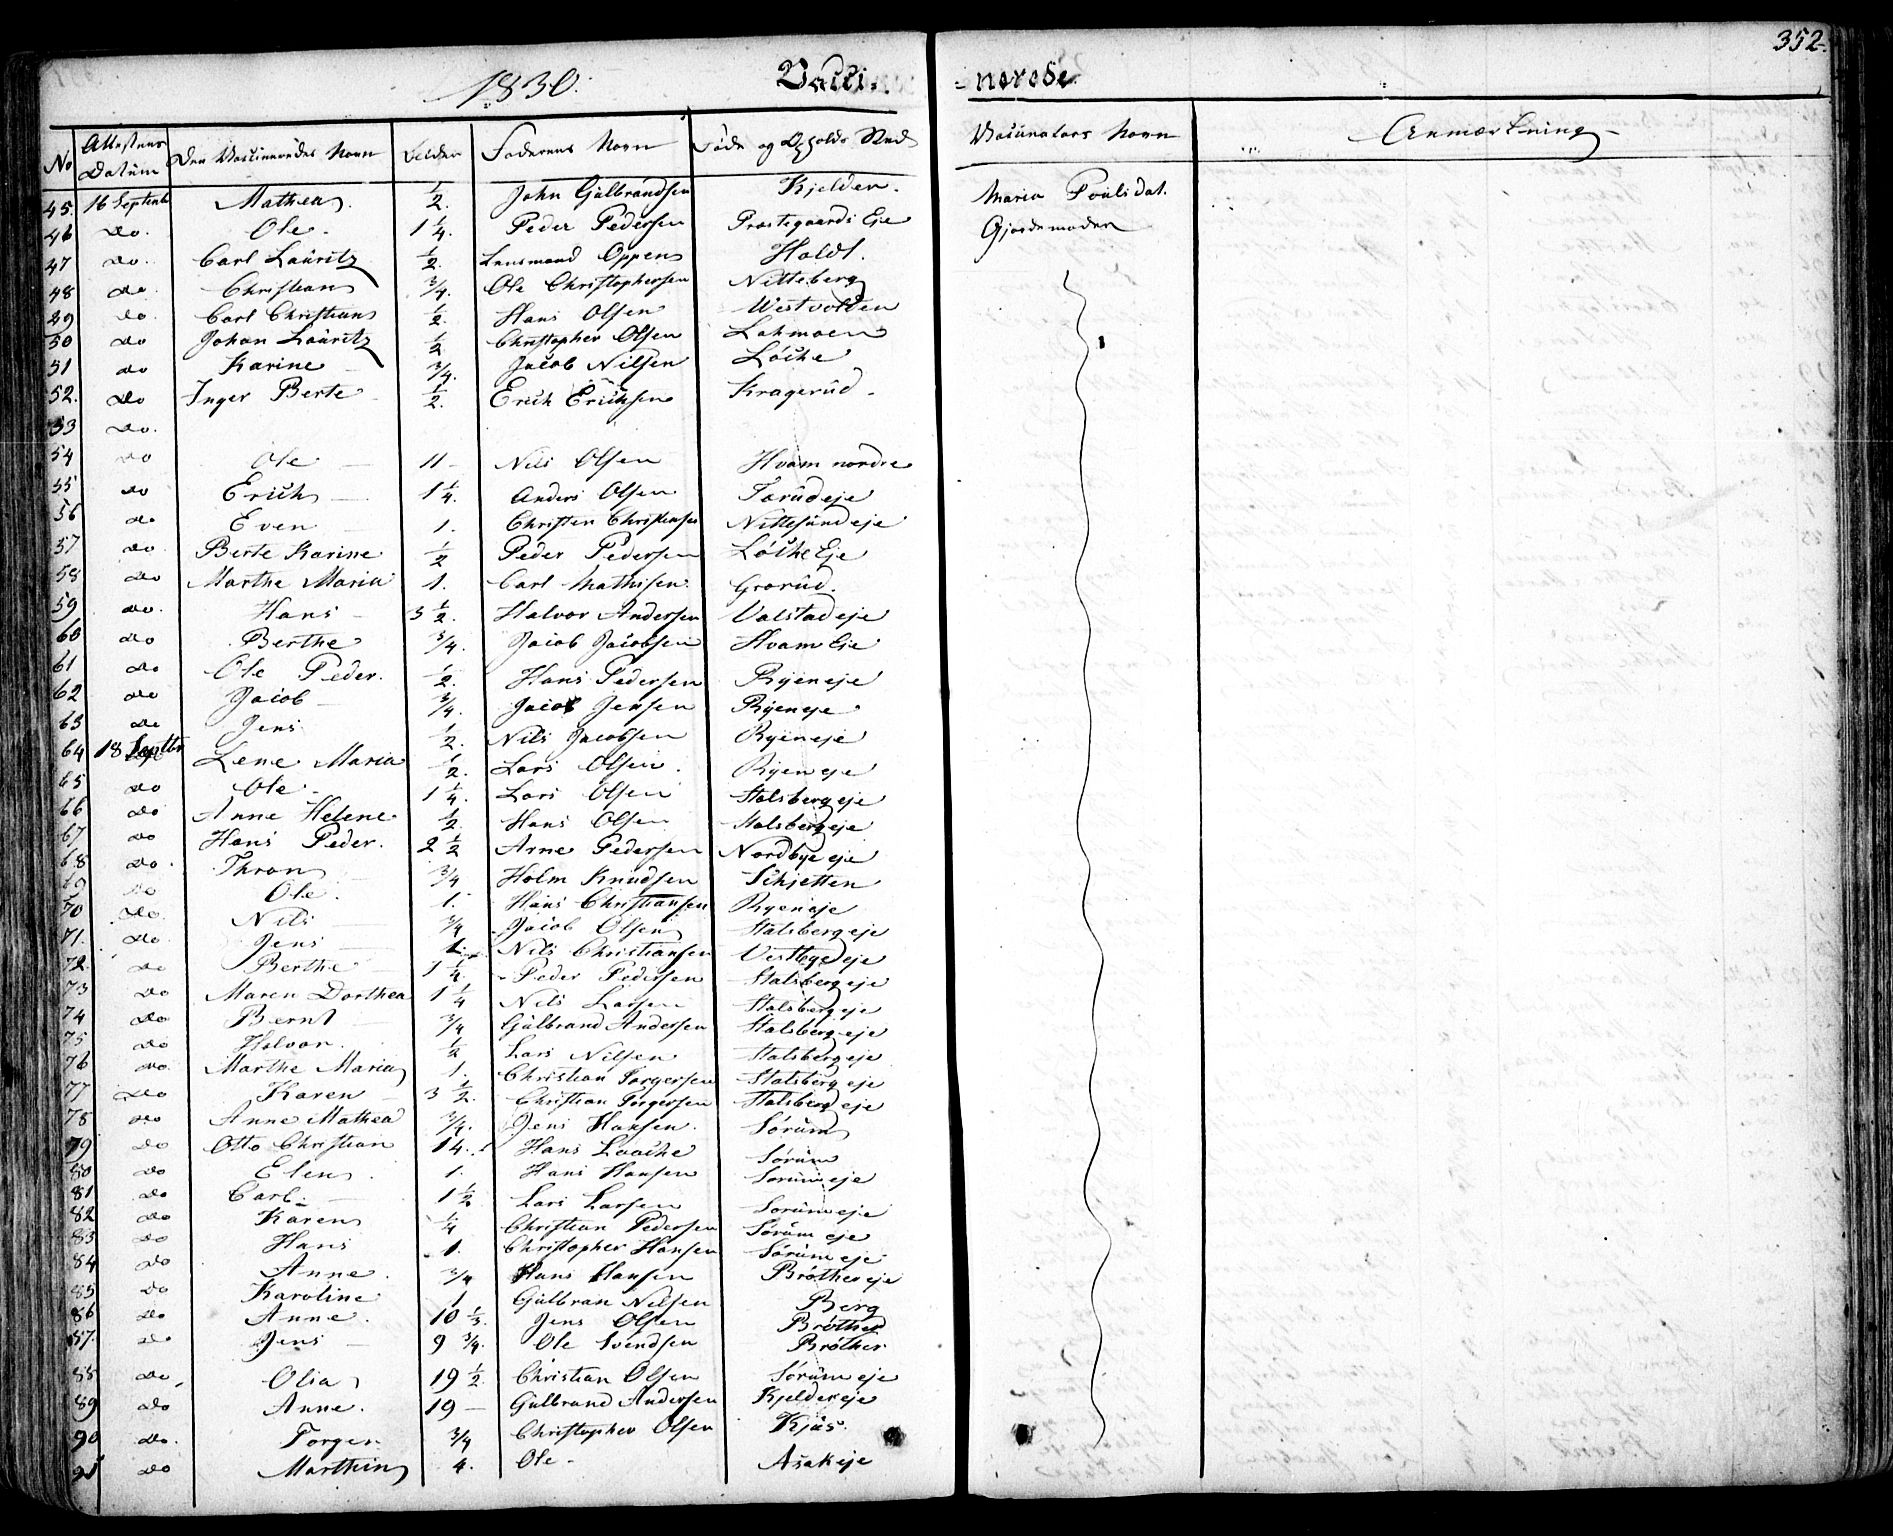 352.
1830. Vacci- nerede.
No Attestens Datum Den Vaccineredes Navn Alder Faderens Navn Føde og Opholds Sted Vaccinators Navn Anmærkning
45. 16 Septemb Mathea. 1/2. John Gulbrandsen Kjelden. Maria Poulsdat.
46 do. Ole. 1 1/4. Peder Pedersen Præstegaards Eje Gjordemoder
47 do. Carl Lauritz 1/2. Lensmand Oppen Holdt.
48 do. Christian 3/4. Ole Christophersen Nitteberg
49 do. Carl Christian 1/2. Hans Olsen Westvolden
50 do Johan Lauritz 1/2 Christopher Olsen Lahmoen
51 do Karine 3/4. Jacob Nilsen Løche
52. do Inger Berte 1/2. Erich Erichsen Kragerud.
53 do.
54 do Ole 11 Nils Olsen Hvam nordre
55 do Erich 1 1/4. Anders Olsen Torud eje
56 do Even 1. Christen Christensen Nittesund eje
57 do Berte Karine 1/2 Peder Pedersen Løche Eje
58 do Marthe Maria 1. Carl Mathisen Grorud.
59 do. Hans 3 1/2. Halvor Andersen Valstad eje
60 do Berthe 3/4. Jacob Jacobsen Hvam Eje
61 do Ole Peder. 1/2. Hans Pedersen Ryen eje
62 do Jacob 3/4. Jacob Jensen Ryen eje
63 do Jens 1/2. Nils Jacobsen Ryen eje
64 18 Septbr Lene Maria 1/2. Lars Olsen. Ryen eje
65 do Ole 1 1/4. Lars Olsen Stalsberg eje
66 do Anne Helene 1/2 Hans Olsen Stalsberg eje
67 do Hans Peder. 2 1/2 Arne Pedersen Nordbye eje
68 do. Thron 3/4 Holm Knudsen Schjetten
69 do Ole. 1. Hans Christiansen Ryen eje
70 do. Nils 3/4 Jacob Olsen Stalsberg eje
71. do. Jens 1. Nils Christiansen Vestbye eje
72. do Berthe 1 1/4. Peder Pedersen Stalsberg eje
73 do Maren Dorthea 1 1/4 Nils Larsen Stalsberg eje
74 do Bernt 3/4 Gulbrand Andersen Stalsberg eje
75 do Halvor. 1/2 Lars Nilsen Stalsberg eje
76 do. Marthe Maria 1. Christian Torgersen Stalsberg eje
77 do Karen 3 1/2. Christian Torgersen Stalsberg eje
78 do Anne Mathea 3/4. Jens Hansen. Sørum
79 do Otto Christian 14. Hans Laache Sørum
80 do Elen. 1. Hans Hansen Sørum eje
81 do Carl. 1 1/2 Lars Larsen Sørum eje
82 do Karen 1/4 Christian Pedersen Sørum eje
83 do Hans 1. Christopher Hansen Sørum eje
84 do Anne. 3/4 Hans Hansen Brøther eje
85 do Karoline 1 Gulbran Nilsen Berg
86 do Anne. 10 1/2. Jens Olsen Brøther
87. do Jens 9 3/4. Ole Svendsen Brøther
88 do, Olia 19 1/2. Christian Olsen Sørum eje
89 do Anne. 19 Gulbrand Andersen Kjelder eje
90 do. Torger 3/4 Christopher Olsen Kjus.
91 do Marthin 4. Ole Asak eje